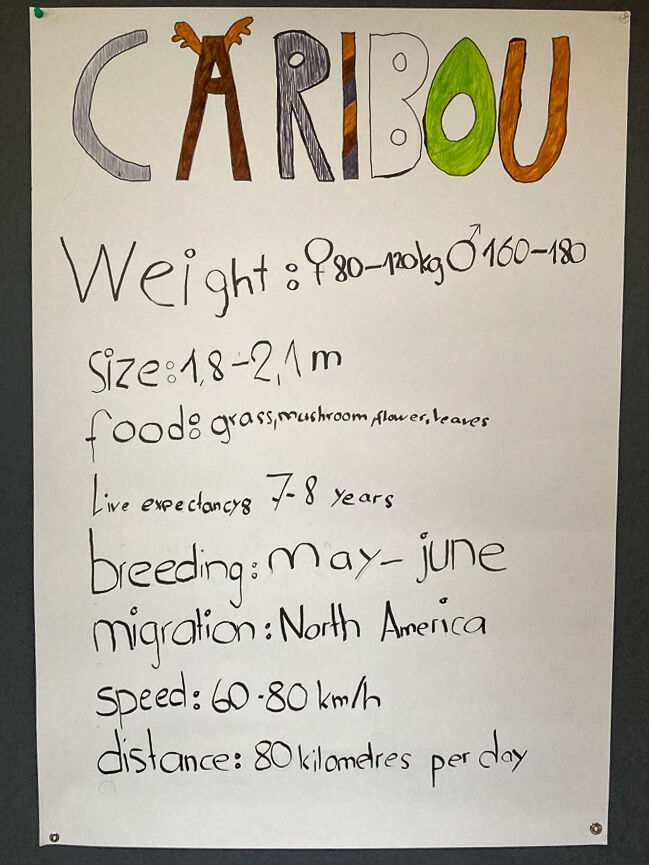 CARIBOU
Weight: ♀80-120kg ♂160-180
Size: 1,8-2,1 m
food: grass, mushroom, flower, leaves
Live expectancy: 7-8 years
breeding: may- june
migration: North America
speed: 60-80 km/h
distance: 80 kilometres per day